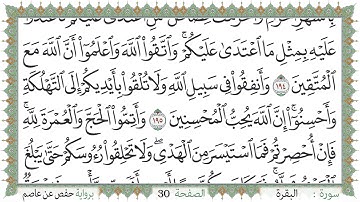 عَلَيْهِ بِمِثْلِ مَا ٱعْتَدَىٰ عَلَيْكُمْ ۚ وَٱتَّقُوا۟ ٱللَّهَ وَٱعْلَمُوٓا۟ أَنَّ ٱللَّهَ مَعَ
ٱلْمُتَّقِينَ ١٩٤ وَأَنفِقُوا۟ فِى سَبِيلِ ٱللَّهِ وَلَا تُلْقُوا۟ بِأَيْدِيكُمْ إِلَى ٱلتَّهْلُكَةِ
وَأَحْسِنُوٓا۟ ۛ إِنَّ ٱللَّهَ يُحِبُّ ٱلْمُحْسِنِينَ ١٩٥ وَأَتِمُّوا۟ ٱلْحَجَّ وَٱلْعُمْرَةَ لِلَّهِ ۚ
فَإِنْ أُحْصِرْتُمْ فَمَا ٱسْتَيْسَرَ مِنَ ٱلْهَدْىِ ۖ وَلَا تَحْلِقُوا۟ رُءُوسَكُمْ حَتَّىٰ يَبْلُغَ
سورة : البقرة الصفحة 30 برواية حفص عن عاصم